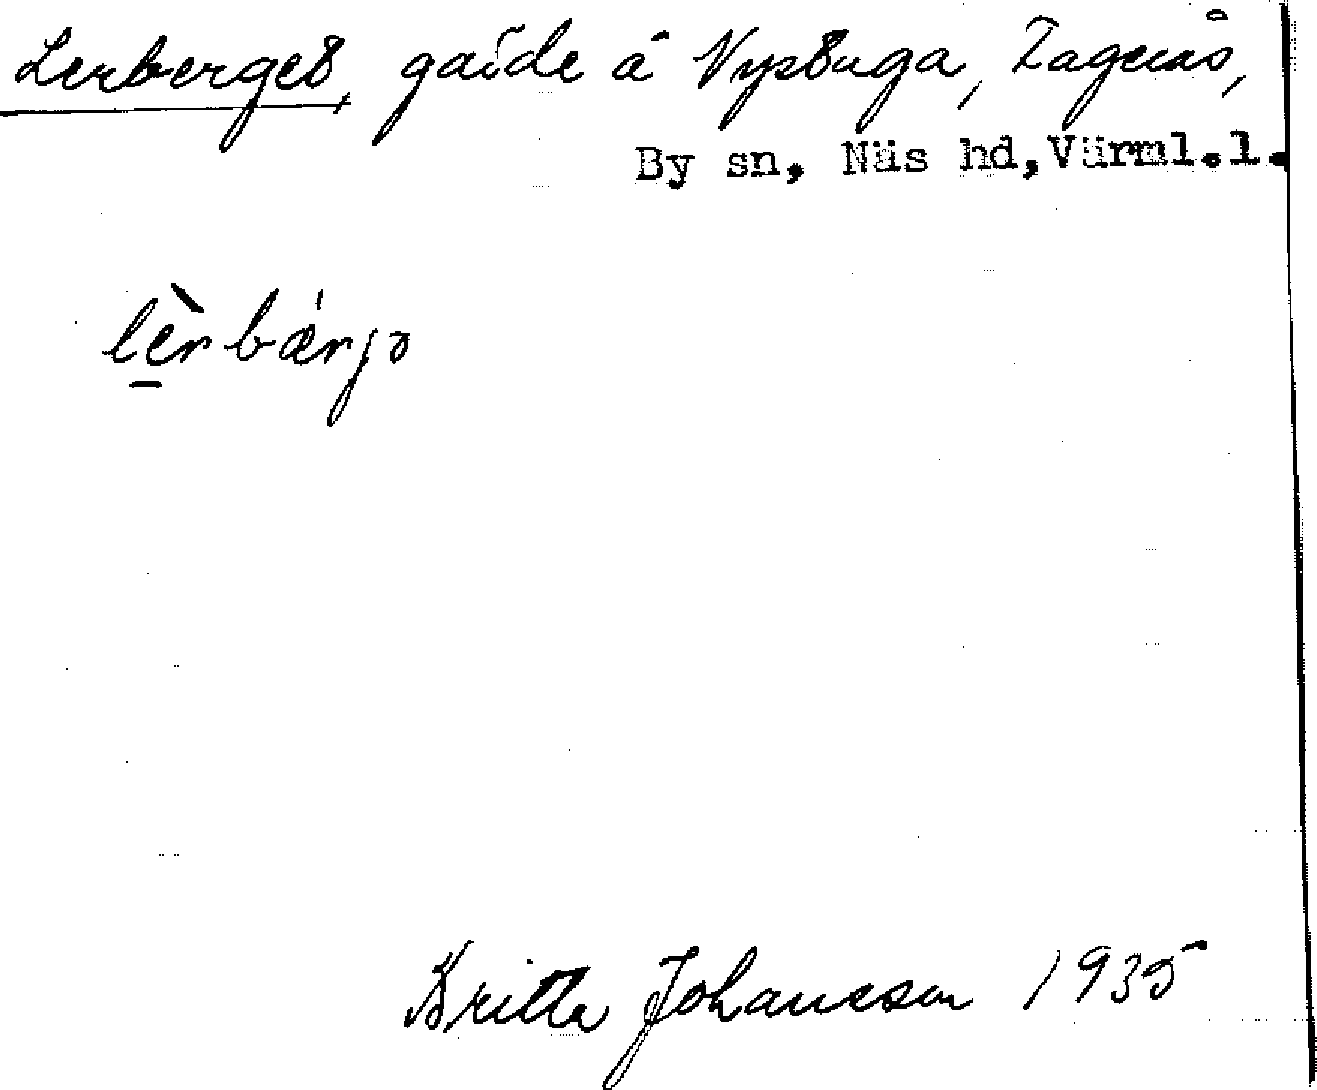 Lerberget, gärde å Nystuga, Lagerås,
By sn, Näs hd, Värml.l.
lèrbærjə
Britta Johansson 1935